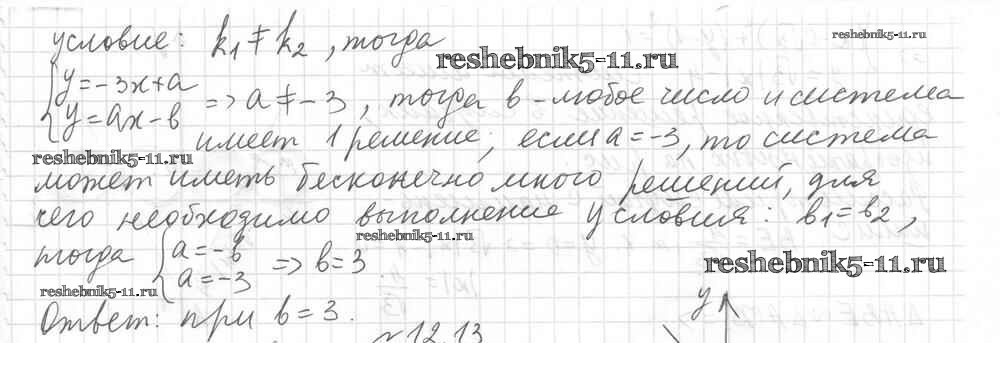 условие: k₁ ≠ k₂, тогда
reshebnik5-11.ru
reshebnik5-11.ru
{y = -3x + a
{y = ax - b => a ≠ -3, тогда b - любое число и система
имеет 1 решение; если a = -3, то система
reshebnik5-11.ru
может иметь бесконечно много решений, для
чего необходимо выполнение условия: b₁ = b₂,
reshebnik5-11.ru
тогда {a = -b
{a = -3 => b = 3
reshebnik5-11.ru
reshebnik5-11.ru
Ответ: при b = 3.
y
№12.13